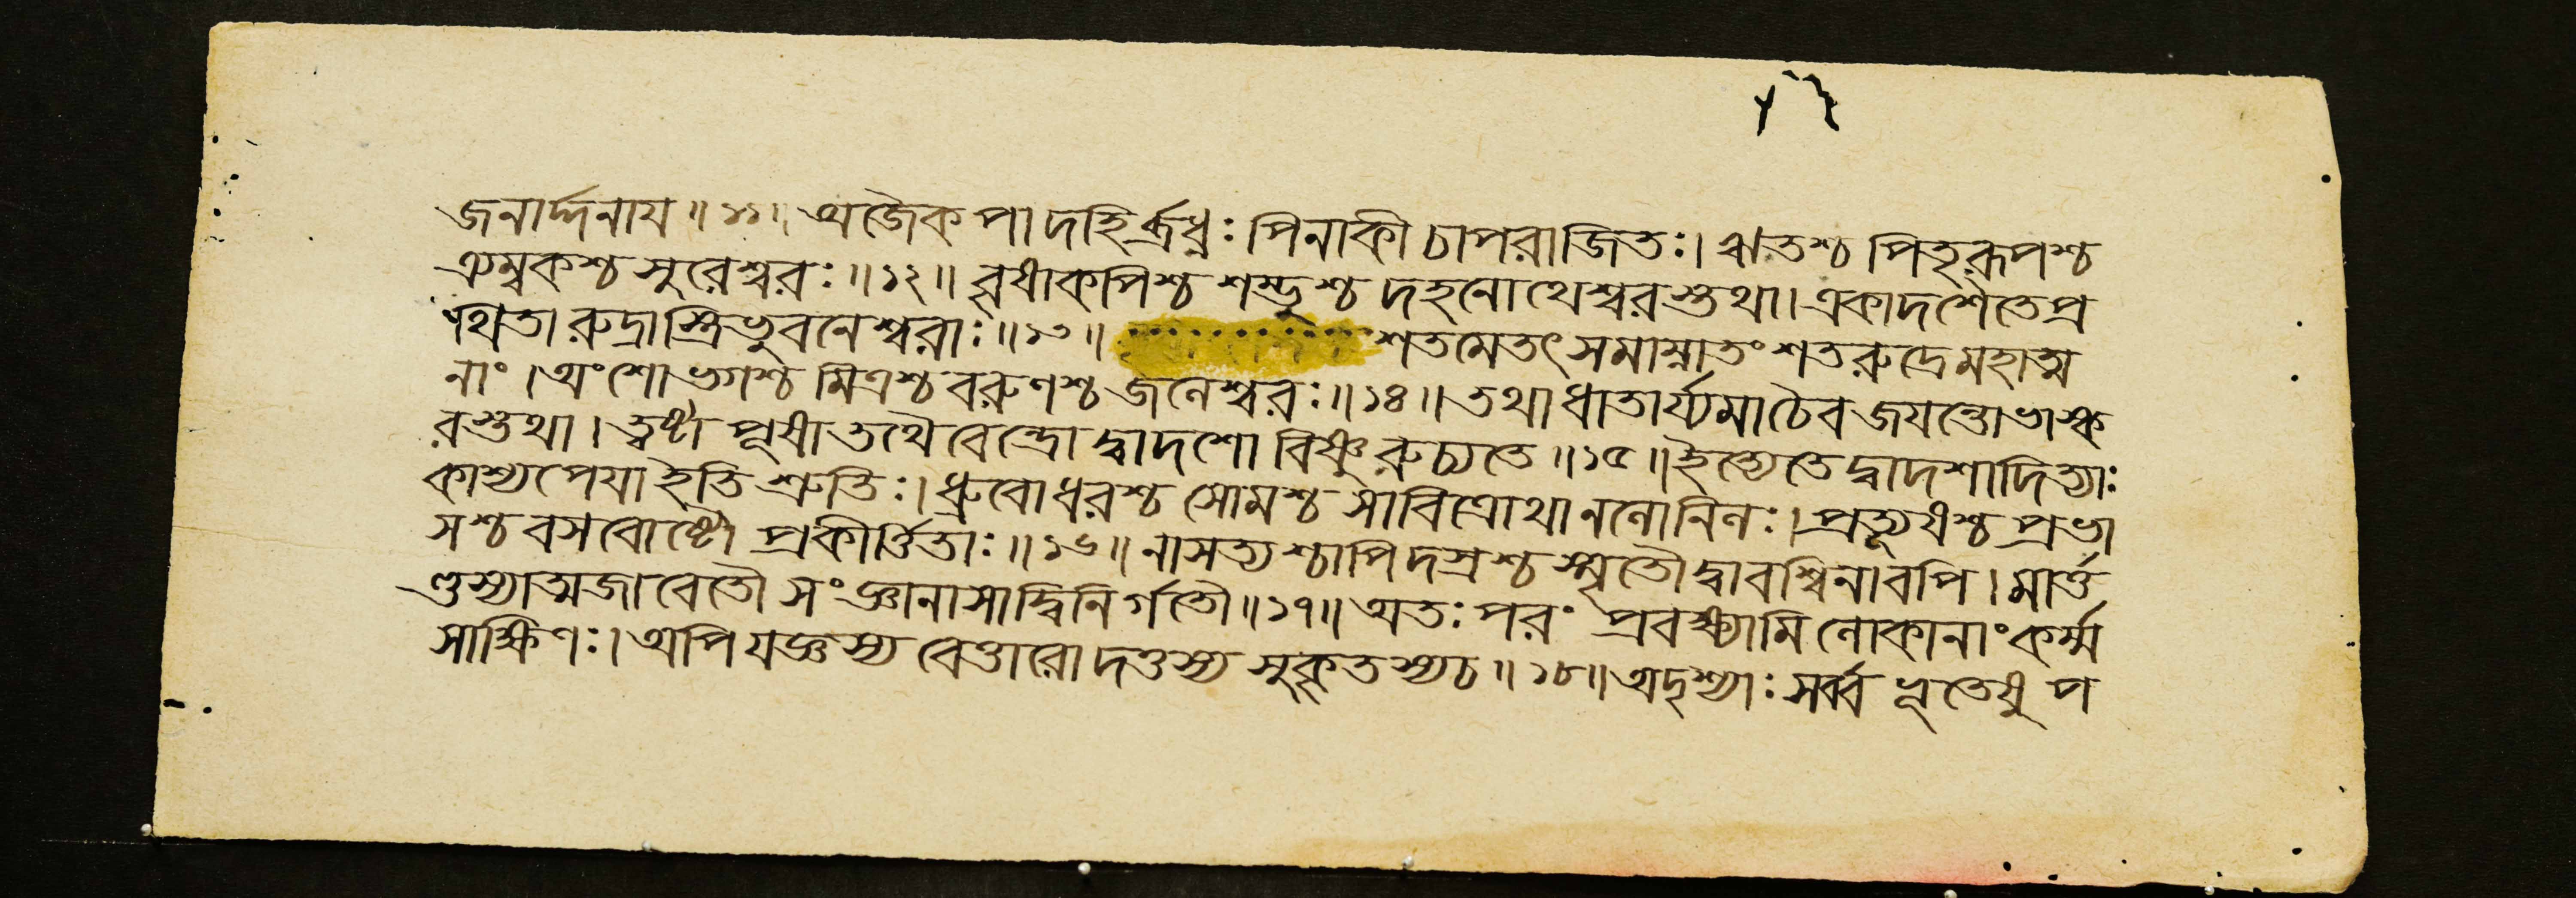 জনার্দ্দনায॥ ১১॥ অজৈকপাদহির্ব্রধ্নঃ পিনাকী চাপরাজিতঃ। ঋতশ্চ পিতৃরূপশ্চ
ত্র্যম্বকশ্চ সুরেশ্বরঃ॥ ১২॥ বৃষাকপিশ্চ শম্ভুশ্চ দহনোথেশ্বরস্তথা। একাদশৈতে প্র
থিতা রুদ্রাস্ত্রিভুবনেশ্বরাঃ॥ ১৩॥ শতমেতৎ সমাম্নাতং শতরুদ্রে মহাত্ম
নাং। অংশো ভগশ্চ মিত্রশ্চ বরুণশ্চ জনেশ্বরঃ॥ ১৪॥ তথা ধাতার্য্যমা চৈব জযন্তো ভাস্ক
রস্তথা। ত্বষ্টা পূষা তথৈবেন্দ্রো দ্বাদশো বিষ্ণুরুচ্যতে॥ ১৫॥ ইত্যেতে দ্বাদশাদিত্যাঃ
কাশ্যপেযা ইতি শ্রুতিঃ। ধ্রুবো ধরশ্চ সোমশ্চ সাবিত্রোথানলোনিলঃ। প্রত্যূষশ্চ প্রভা
সশ্চ বসবোষ্টৌ প্রকীর্ত্তিতাঃ॥ ১৬॥ নাসত্যশ্চাপি দস্রশ্চ স্মৃতৌ দ্বাবশ্বিনাবপি। মার্ত্ত
ণ্ডস্যাত্মজাবেতৌ সংজ্ঞানাসাদ্বিনির্গতৌ॥ ১৭॥ অতঃ পরং প্রবক্ষ্যামি লোকানাং কর্ম্ম
সাক্ষিণঃ। অপি যজ্ঞস্য বেত্তারো দত্তস্য সুকৃতস্য চ॥ ১৮॥ অদৃশ্যাঃ সর্ব্বভূতেষু প